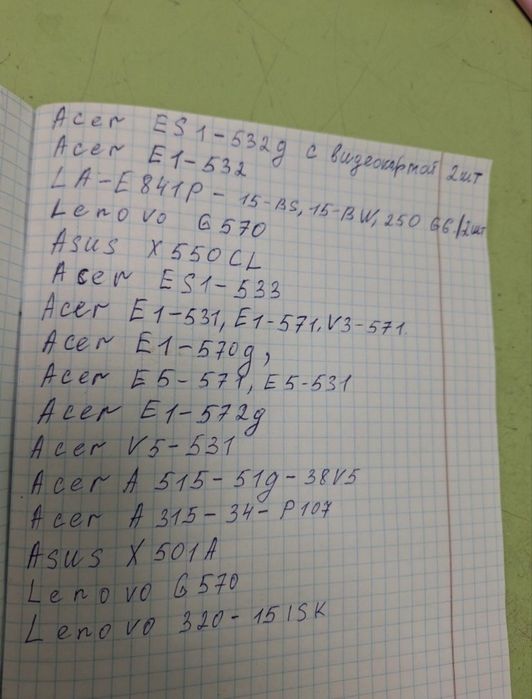 Acer ES1-532g с видеокартой 2шт
Acer E1-532
LA-E841P - 15-BS, 15-BW, 250 G6./2шт
Lenovo G570
Asus X550CL
Acer ES1-533
Acer E1-531, E1-571, V3-571.
Acer E1-570g,
Acer E5-571, E5-531
Acer E1-572g
Acer V5-531
Acer A 515-51g-38V5
Acer A 315-34-P107
Asus X501A
Lenovo G570
Lenovo 320-15ISK